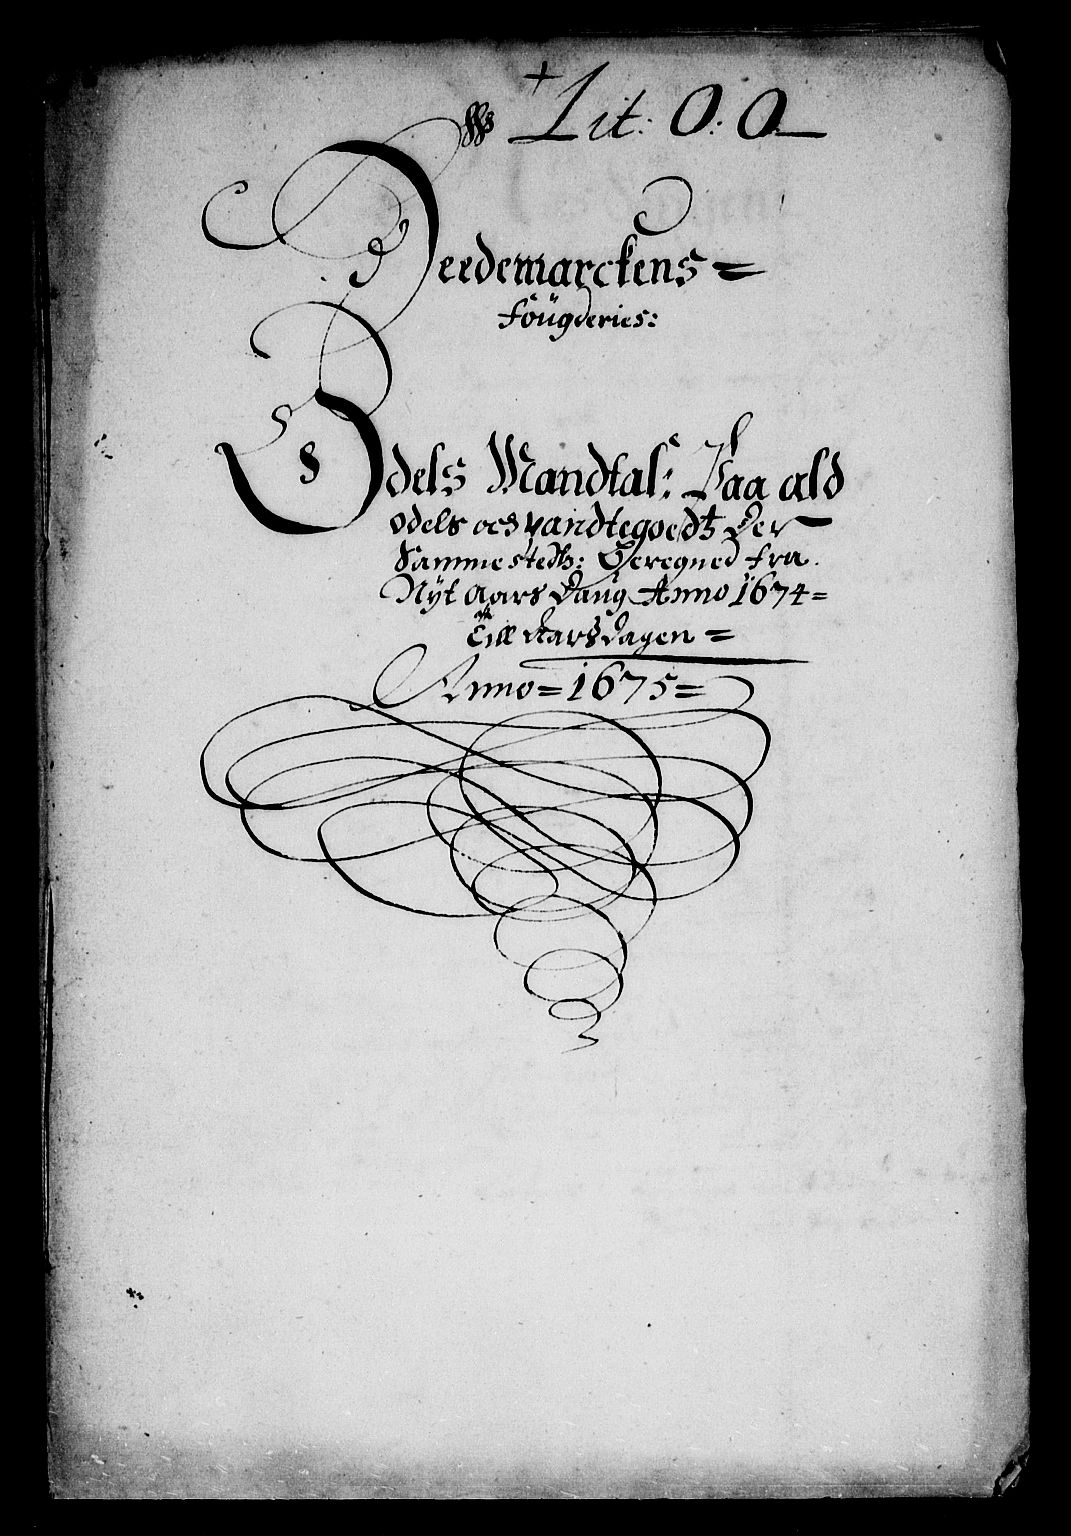 + Lit: O: O
Heedemarckens =
föügderies:
Odels Mandtal: Paa ald
odels och pandtegoedtz der
Sammestedtz: Beregned fra
Nÿt Aars Daug Anno 1674 =
Till Aarsdagen =
Anno = 1675 =